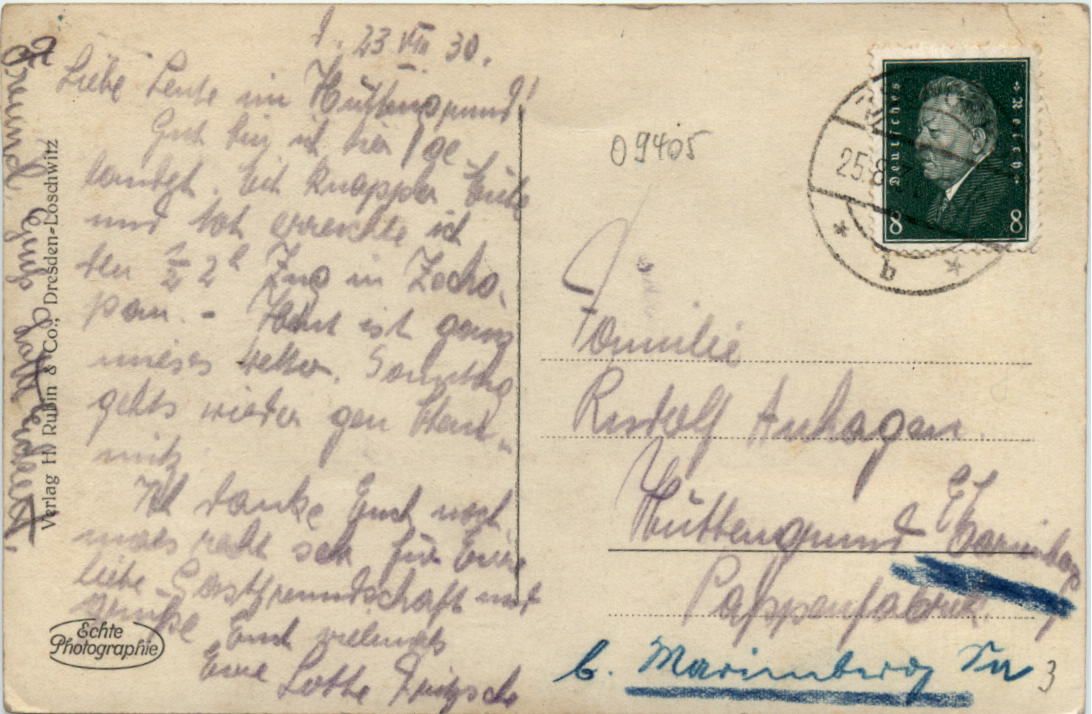 23. VIII 30.
Liebe Leute im Hüttengrund!
Gut bin ich hier ge-
landet. Mit knapper Mühe
und Not erreichte ich
den ½ 2 h Zug in Zscho-
pau. - Heut ist ganz
mieses Wetter. Sonntag
gehts wieder gen Chem-
nitz.
Ich danke Euch noch
mals recht sehr für Eure
liebe Gastfreundschaft und
grüße Euch vielmals
Eure Lotte Fritzsche
Verlag H. Rubin & Co., Dresden-Loschwitz
Echte
Photographie
09405
Deutsches Reich
8 8
25.8
b
Familie
Rudolf Anhagen.
Hüttengrund
Pappenfabrik
b. Marienberg Sa
3